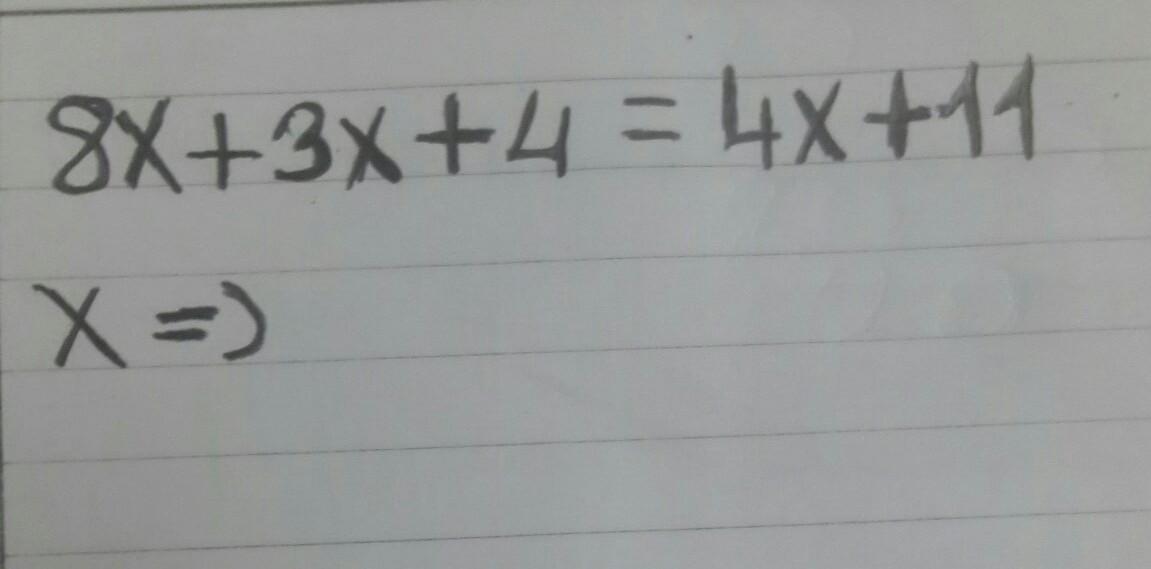 8x+3x+4 = 4x+11
x =>